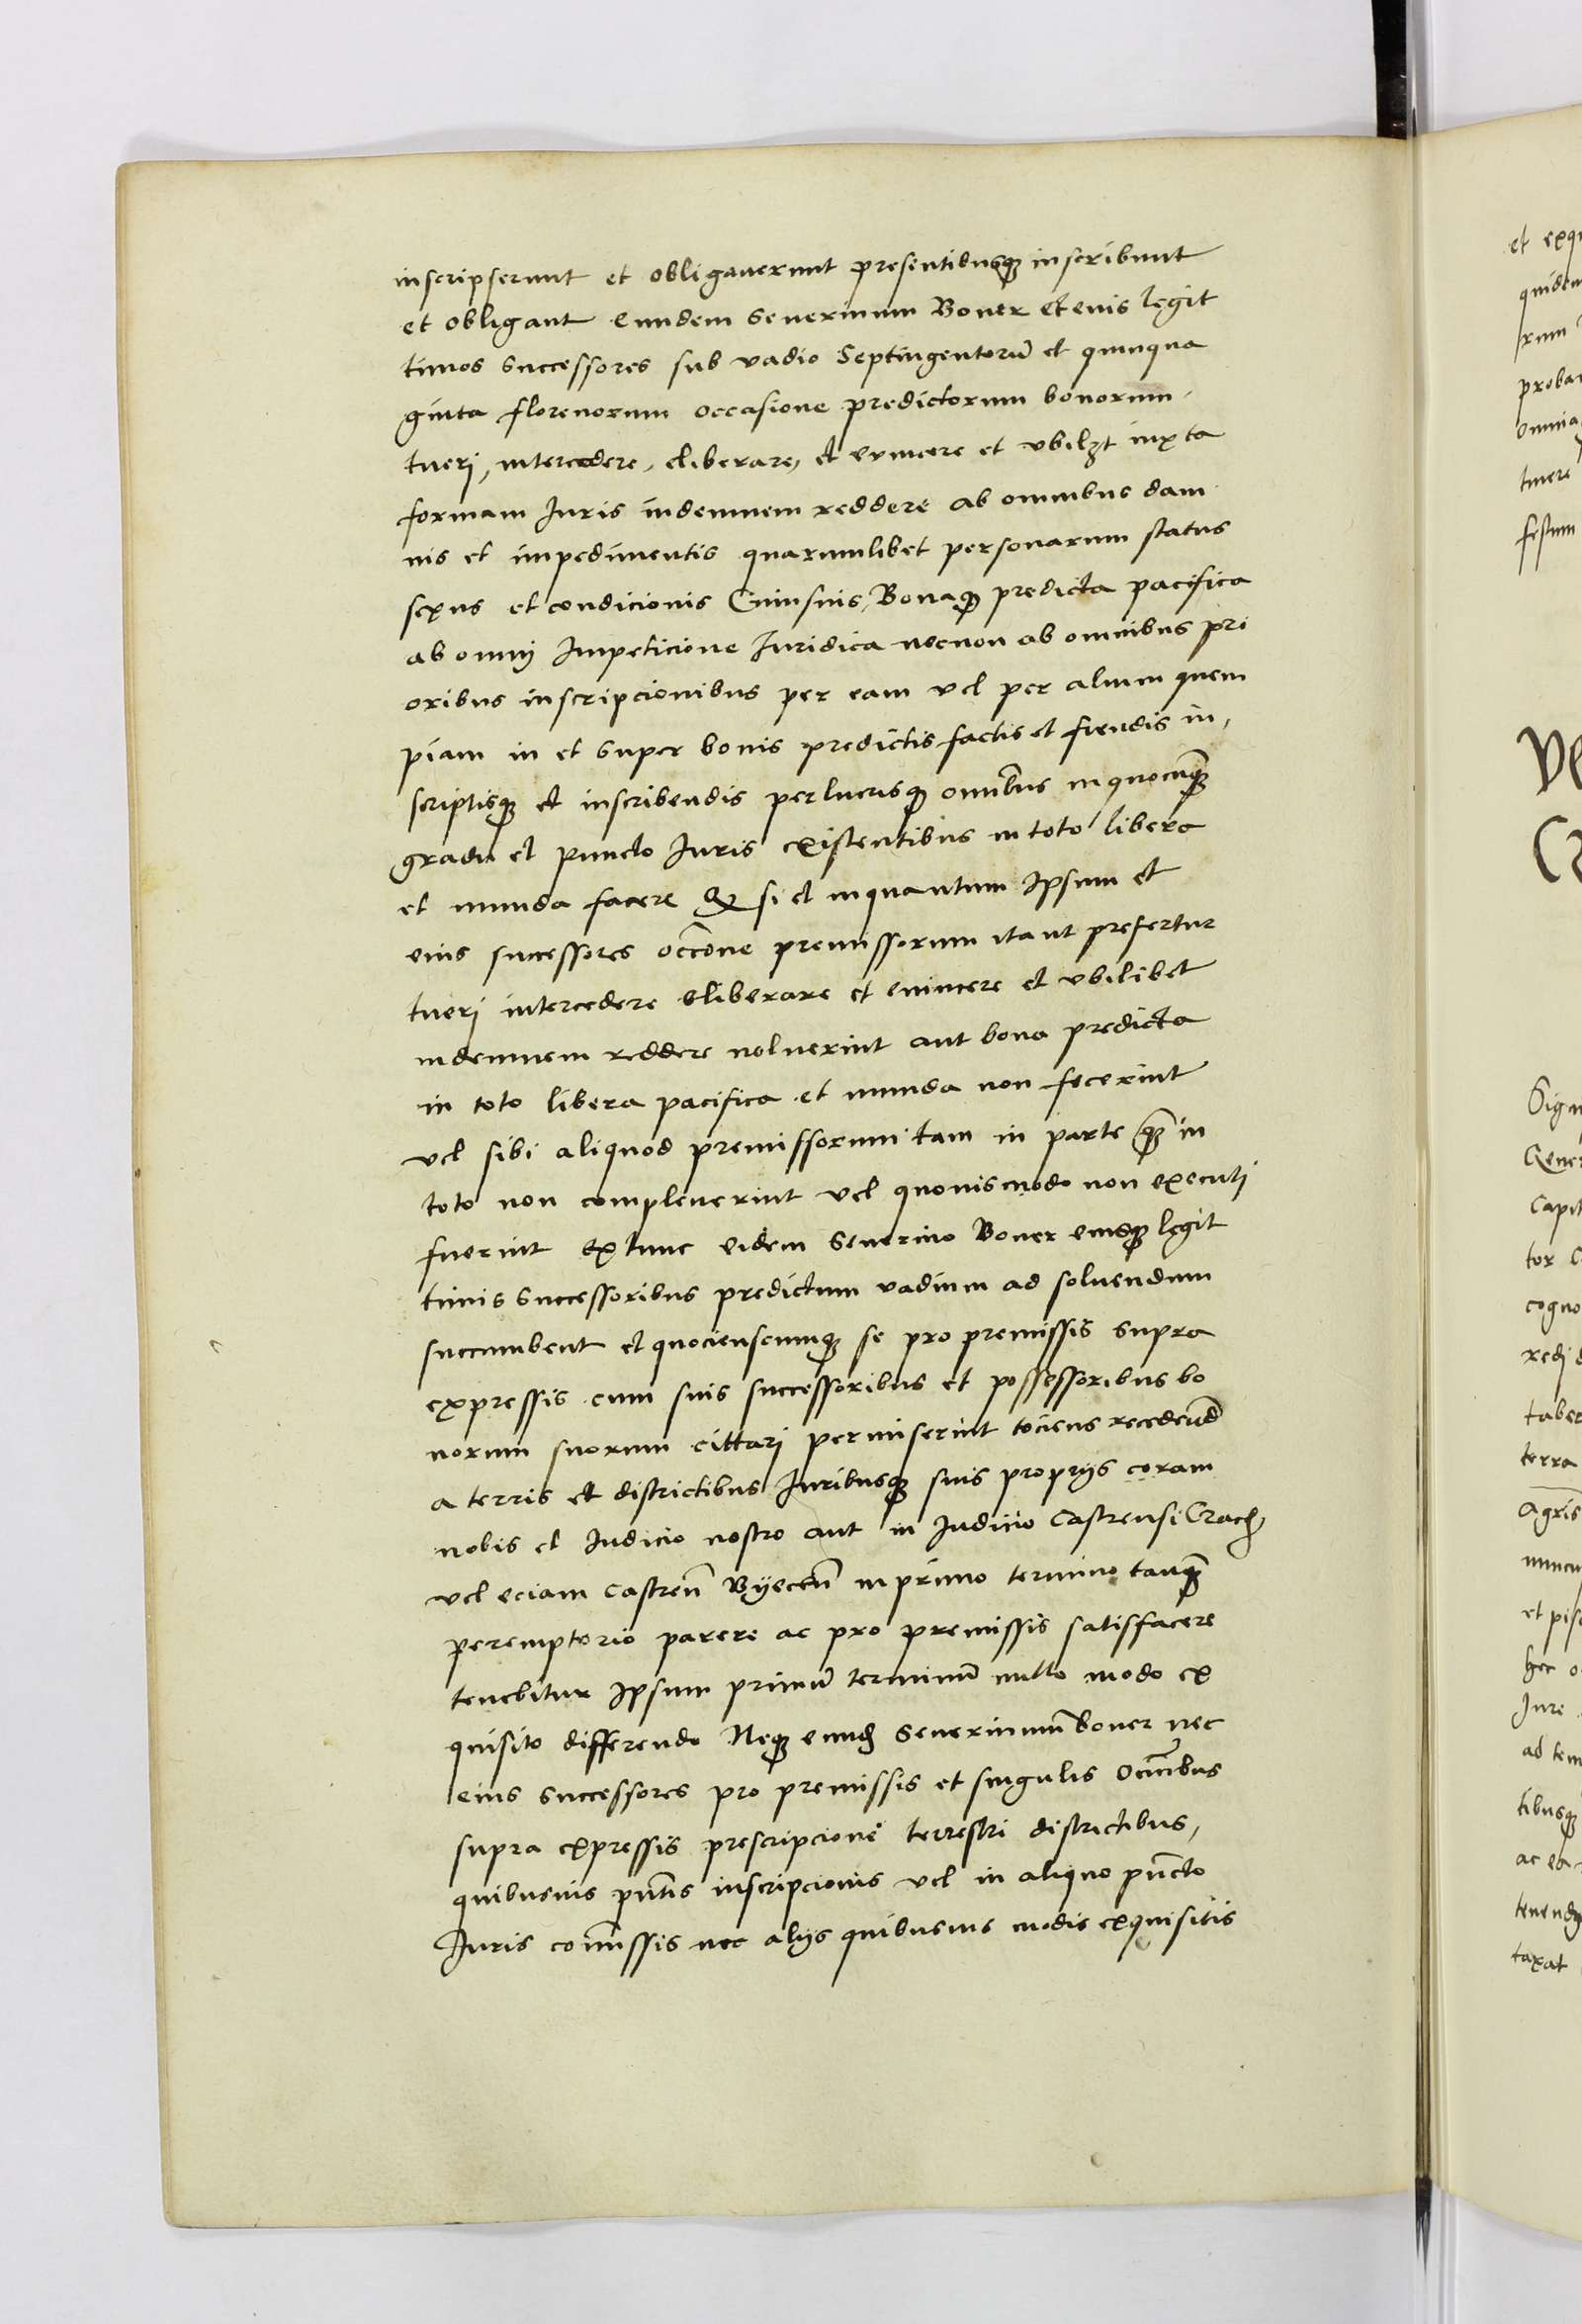 inscripserunt et obligauerunt presentibusq3 inscribunt
et obligant eundem Seuerinum Boner et euis legit
timos successores sub vadio Septingentorū et quinqua
ginta florenorum occasione predictorum bonorum
tueri, intercedere, eliberare, et euincere et vbilz3t iuxta
formam Iuris indemnem reddere ab omnibus dam
nis et impedimentis quarumlibet personarum status
sexus et condicionis Cuiusuis, Bonaq3 predicta pacifica
ab omnj Impeticione Iuridica necnon ab omnibus pri
oribus inscripcionibus per eam vel per alium quem
piam in et super bonis predictis factis et fiendis in,
scriptisq3 et inscribendis perlucrisq3 omībus in quocūq3
gradu et puncto Iuris existentibus in toto libera
et munda facere Q3 si et inquantum Ipsum et
eius successores occōne premissorum ita ut prefertur
tuerj intercedere eliberare et euincere et vbilibet
indemnem reddere noluerint aut bona predicta
in toto libera pacifica et munda non fecerint
vel sibi aliquod premissorum tam in parte q3 in
toto non compleuerint vel quouismodo non executj
fuerint Extunc eidem Seuerino Boner eiusq3 legit
timis successoribus predictum vadium ad soluendum
succumbent et quocienscumq3 se pro premissis supra
expressis cum suis successoribus et possessoribus bo
norum suorum cittarj permiserint tociens recedeūd
a terris et districtibus Iuribusq3 suis proprijs coram
nobis et Iudicio nostro aut in Iudicio Castrensi Crach
vel eciam castreñ Byeceñ in primo termino tanq3
peremptorio parere ac pro premissis satisfacere
tenebitur Ipsum primū terminū nullo modo ex
quisito differendo Neq3 eund Seuerinum boner nec
eius successores pro premissis et singulis omībus
supra expressis prescripcione terrestri districtibus,
quibusuis pn̄tis inscripcionis vel in aliquo pūcto
Iuris comissis nec alijs quibusuis modis exquisitis